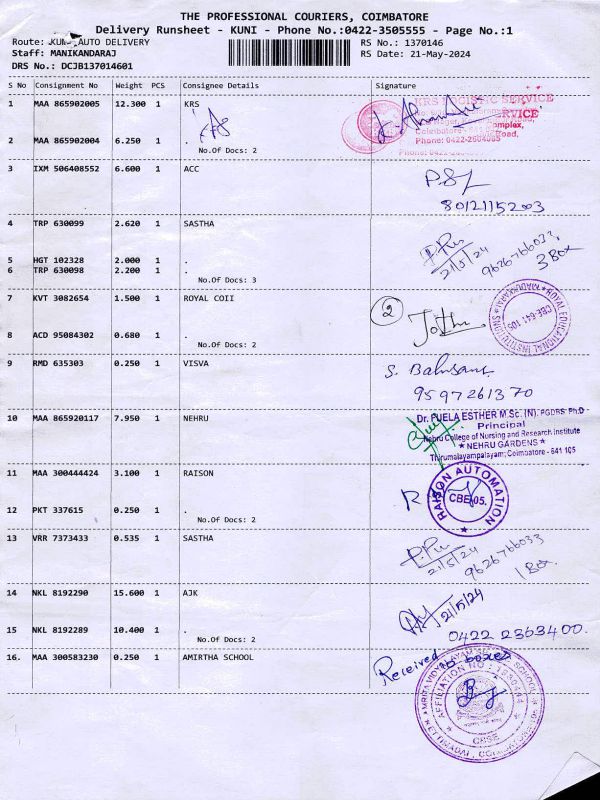 THE PROFESSIONAL COURIERS, COIMBATORE
Delivery Runsheet - KUNI - Phone No.:0422-3505555 - Page No.:1
Route: KUNI AUTO DELIVERY
RS No.: 1370146
Staff: MANIKANDARAJ
RS Date: 21-May-2024
DRS No.: DCJB137014601
S No Consignment No Weight PCS Consignee Details Signature
1 MAA 865902005 12.300 1 KRS
KRS LOGISTIC SERVICE
SERVICE
Complex,
Road,
Phone: 0422-2604065
2 MAA 865902004 6.250 1 .
No.Of Docs: 2
3 IXM 506408552 6.600 1 ACC
80121152003
4 TRP 630099 2.620 1 SASTHA
21/5/24
9626766033,
3 Box
5 HGT 102328 2.000 1 .
6 TRP 630098 2.200 1 .
No.Of Docs: 3
7 KVT 3082654 1.500 1 ROYAL COII
2
ROYAL EDUCATIONAL INSTITUTIONS
MADUKKARAI
CBE-641 105
8 ACD 95084302 0.680 1 .
No.Of Docs: 2
9 RMD 635303 0.250 1 VISVA
9597261370
10 MAA 865920117 7.950 1 NEHRU
Dr. FUELA ESTHER M.Sc. (N). PGDRS Ph.D
Principal
Nehru College of Nursing and Research Institute
* NEHRU GARDENS *
Thirumalayampalayam, Coimbatore - 641 105
11 MAA 300444424 3.100 1 RAISON
R
RAISON AUTOMATION
CBE-05.
12 PKT 337615 0.250 1 .
No.Of Docs: 2
13 VRR 7373433 0.535 1 SASTHA
21/5/24
9626766033
1 Box.
14 NKL 8192290 15.600 1 AJK
21/5/24
15 NKL 8192289 10.400 1 .
No.Of Docs: 2
0422 2363400.
16. MAA 300583230 0.250 1 AMIRTHA SCHOOL
Received
AFFILIATION NO : 1930444
CBSE